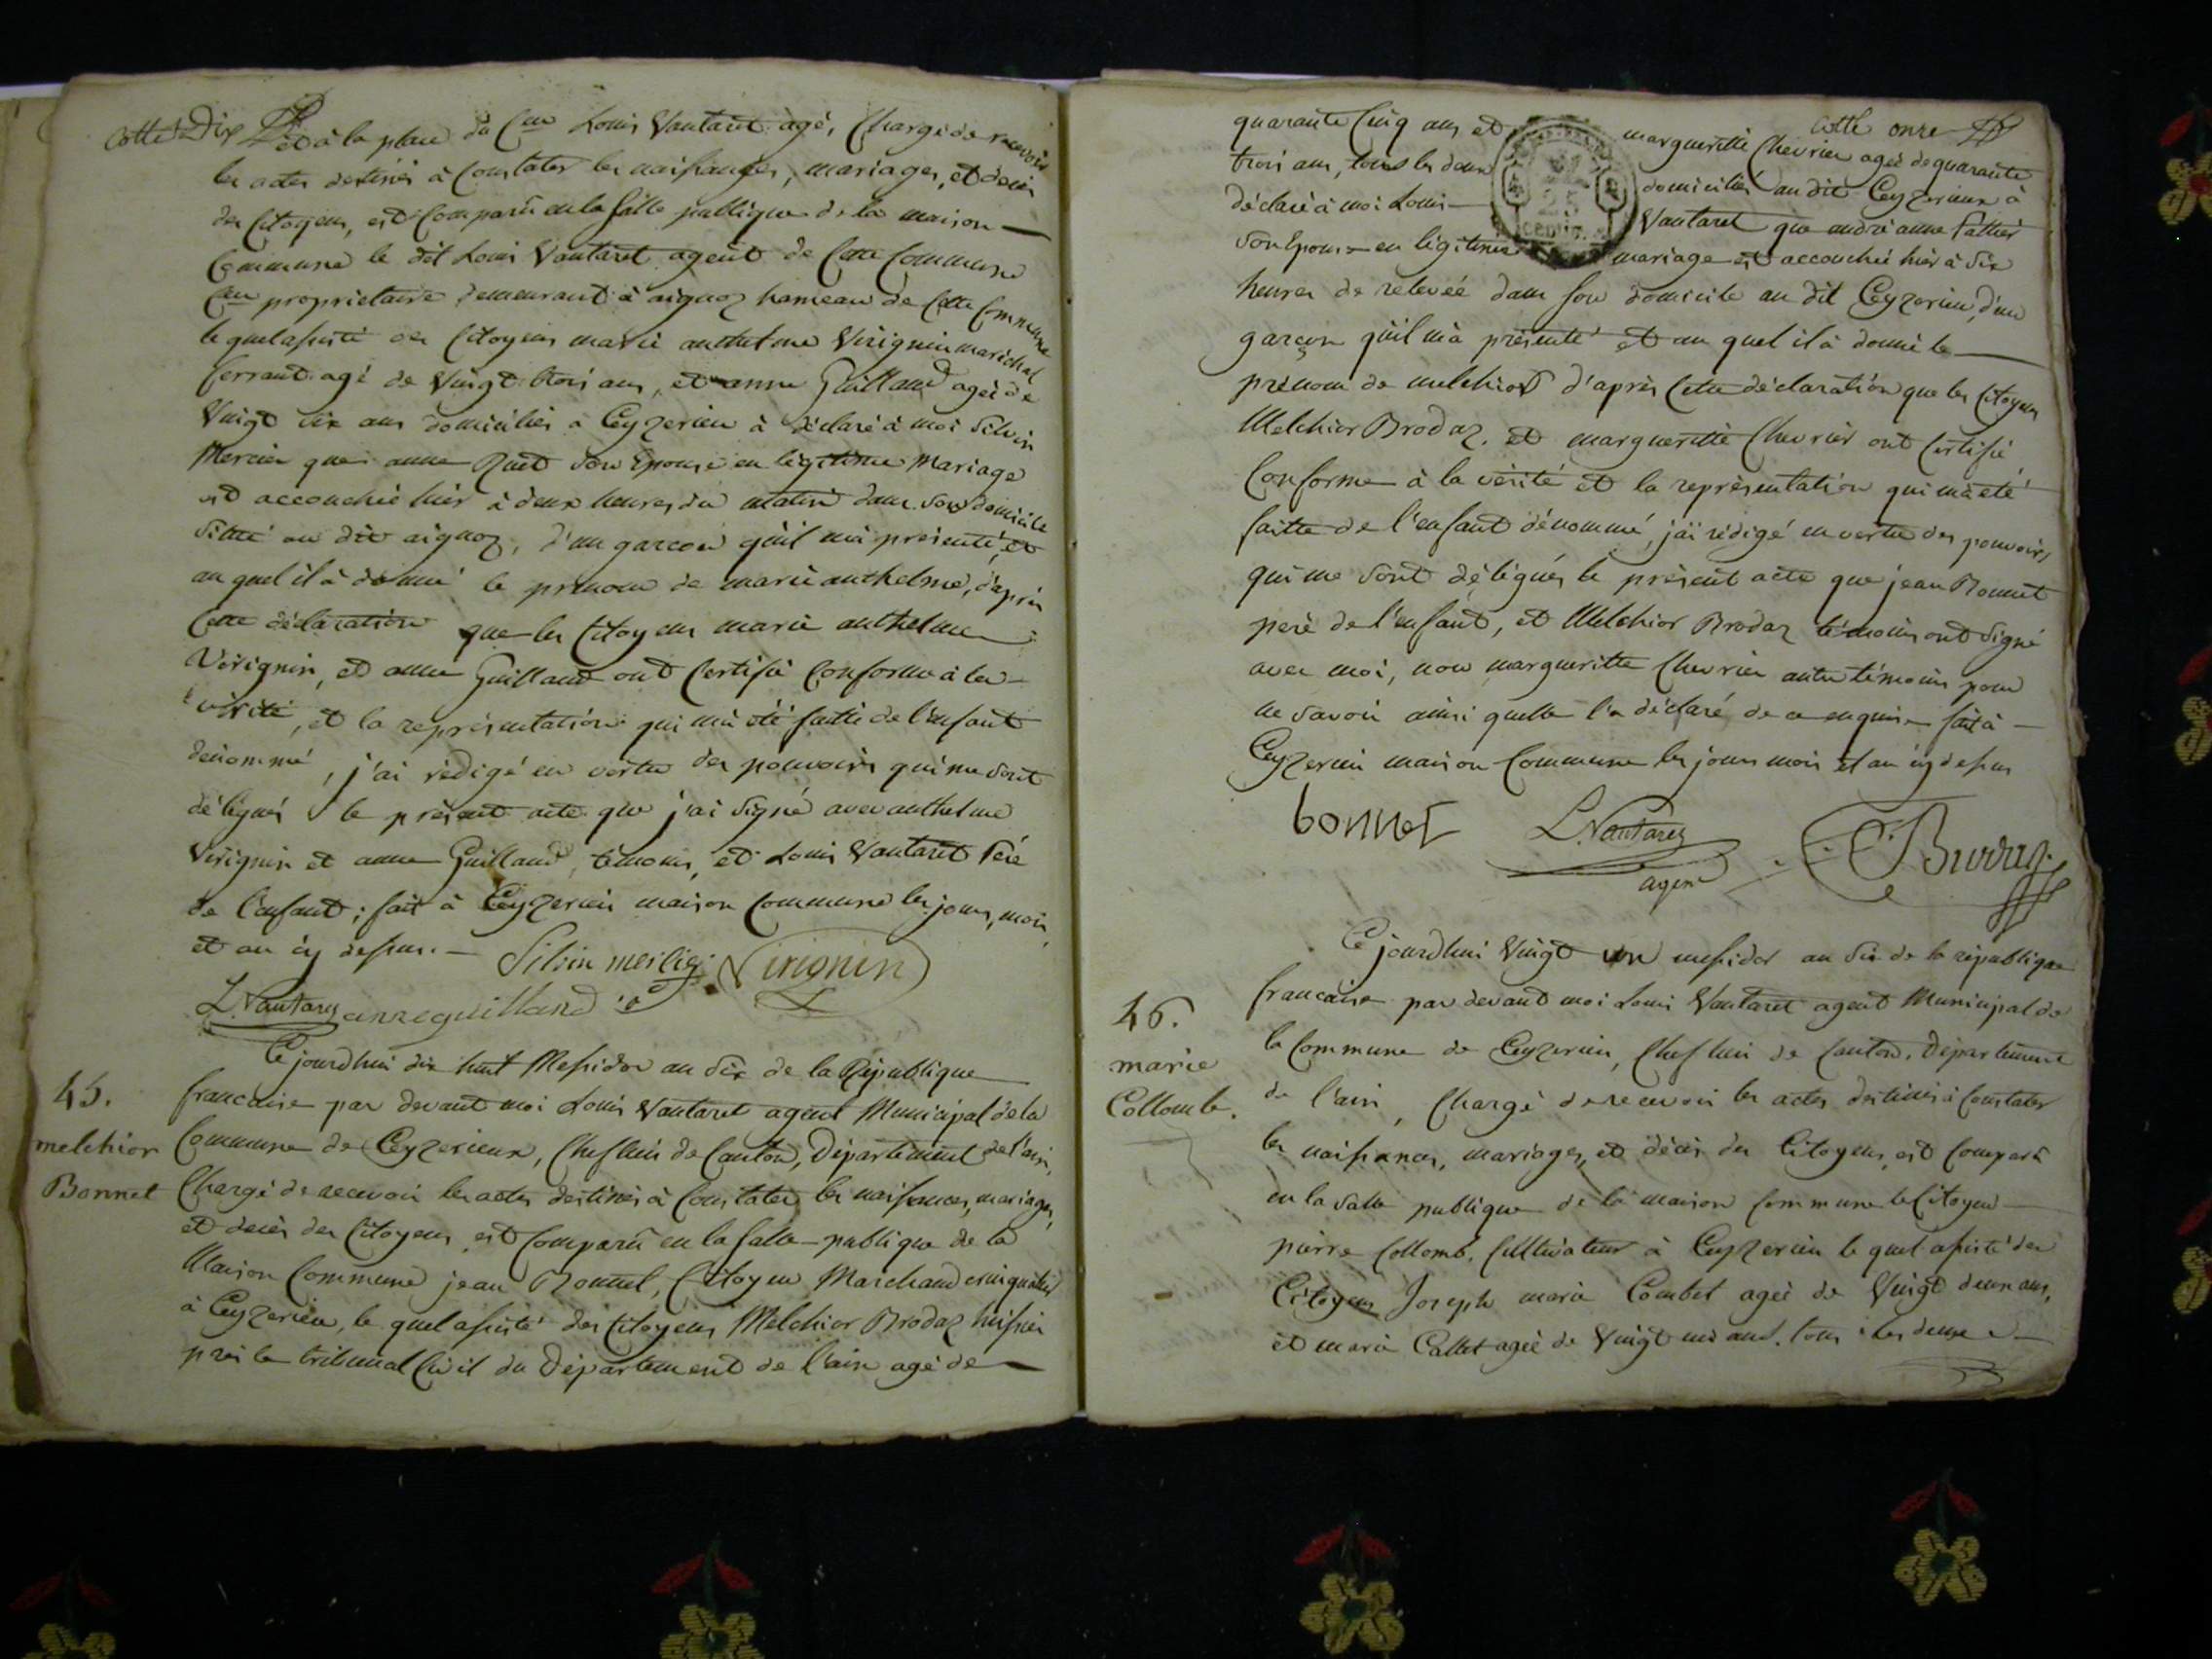 cotte Dix
et à la place du Cen Louis Vautaret agé, Chargé de recevoir
les actes destinés à Constater les naissances, mariages, et décès
des Citoyens, est Comparû en la salle publique de la maison
Commune le dit Louis Vautaret agent de Cette Commune
Cen proprietaire demeurant à aignoz hameau de Cette Commune
le quel assisté des Citoyens marie anthelme Virignin maréchal
ferrant agé de Vingt trois ans, et anne Guilland agée de
Vingt six ans domiciliés a Ceyzerieu à déclaré à moi Silvin
Mercier que anne son Epouse en légitime Mariage
est accouchée hier à deux heures du matin dans son domicile
situé au dit aignoz, d'un garcon qu'il m'a présenté, et
au quel il à donné le prenom de marie anthelme, d'après
Cette déclaration que les Citoyens marie anthelme
Virignin, et anne Guilland ont Certifié Conforme à la
vérité, et la représentation qui m'a été faitte de l'enfant
dénommé, j'ai rédigé en vertu des pouvoirs qui me sont
délégués le présent acte que j'ai signé avec anthelme
Virignin et anne Guilland, témoins, et Louis Vautaret Père
de l'enfant; fait à Ceyzerieu maison Commune les jours, mois,
et an cy dessus.
Silvin mercier Virignin
L. Vautaret anne guilland
45.
melchior
Bonnet
Ce jourdhui dix huit Messidor an Six de la République
francaise par devant moi Louis Vautaret agent Municipal de la
Commune de Ceyzerieux, Chef lieu de Canton, Département de l'ain,
Chargé de recevoir les actes destinés à Constater les naissances, mariages,
et décès des Citoyens, est Comparû en la salle publique de la
Maison Commune jean Bonnet, Citoyen Marchand
à Ceyzerieu, le quel assisté des Citoyens Melchior Brodaz huissier
près le tribunal Civil du Département de l'ain agé de
cotte onze
quarante Cinq ans et margueritte Chevrier agée de quarante
trois ans, tous les deux domiciliés au dit Ceyzerieux à
déclaré à moi Louis Vautaret que andré anne
son Epouse en légitime mariage est accouchée hier à six
heures de relevée dans son domicile au dit Ceyzerieu, d'un
garçon qu'il m'a présenté et au quel il à donné le
prénom de melchior d'après Cette déclaration que les Citoyens
Melchior Brodaz. et margueritte Chevrier ont Certifié
Conforme à la vérité et la représentation qui m'a été
faitte de l'enfant dénommé, j'ai rédigé en vertu des pouvoirs
qui me sont délégués le présent acte que jean Bonnet
pere de l'enfant, et Melchior Brodaz témoins ont signé
avec moi, non margueritte Chevrier autre témoin pour
ne savoir ainsi quelle l'a déclaré de ce enquise fait à
Ceyzerieu maison Commune les jours mois et an cy dessus
bonnet L. Vautaret
agent
46.
marie
Collombe.
Ce jourdhui Vingt un messidor an Six de la république
francaise par devant moi Louis Vautaret agent Municipal de
la Commune de Ceyzerieu, Chef lieu de Canton. Département
de l'ain, Chargé de recevoir les actes destinés à Constater
les naissances, mariages, et décès des Citoyens, est Comparû
en la salle publique de la maison Commune le Citoyen
pierre Collomb. Cultivateur à Ceyzerieu le quel assisté des
Citoyens Joseph marie Combet agée de Vingt deux ans,
et marie Callet agée de Vingt un ans. tous les deux